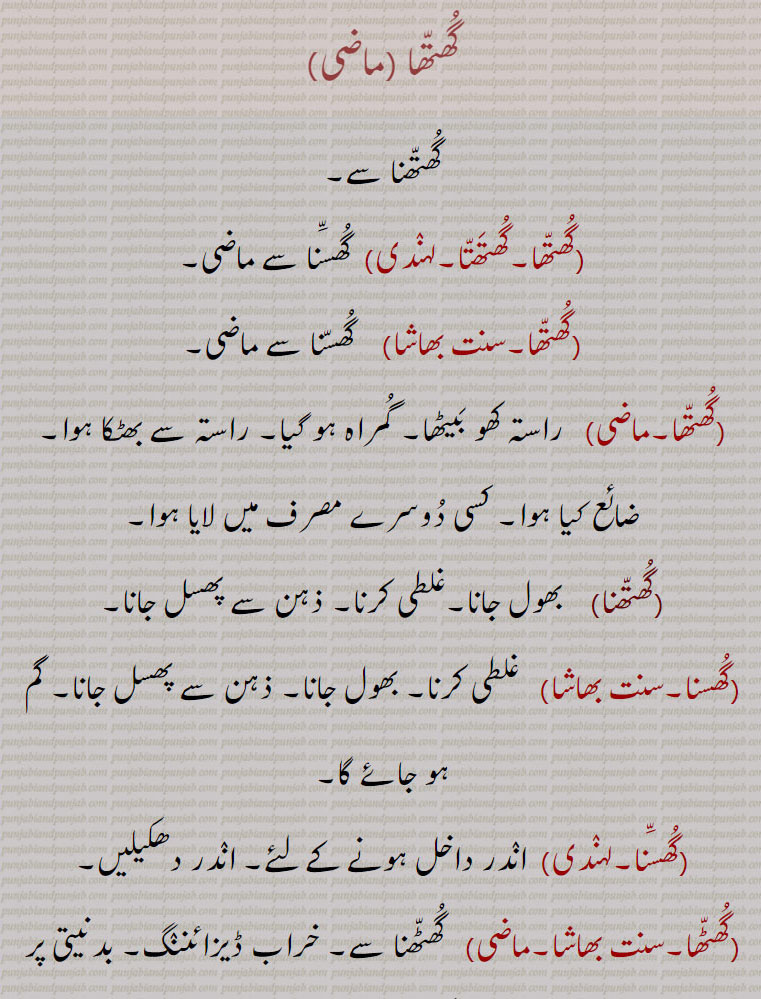 گُھتّھا (ماضی)
گُھتّھنا سے۔
(گُھتّھا۔گُھتَھتّا۔لہندی) گُھسنِّا سے ماضی۔
(گُھتّھا۔سنت بھاشا) گُھسّنا سے ماضی۔
(گُھتّھا۔ماضی) راستہ کھو بَیٹھا۔ گُمراہ ہو گیا۔ راستہ سے بھٹکا ہوا۔
ضائع کیا ہوا۔ کسی دُوسرے مصرف میں لایا ہوا۔
(گُھتّھنا) بھول جانا۔غلطی کرنا۔ ذہن سے پھسل جانا۔
(گُھسنا۔سنت بھاشا) غلطی کرنا۔ بھول جانا۔ ذہن سے پھسل جانا۔ گم
ہو جائے گا۔
(گُھسنِّا۔لہندی) اندر داخل ہونے کے لئے۔ اندر دھکیلیں۔
(گُھٹّھا۔سنت بھاشا۔ماضی) گُھٹّھنا سے۔ خراب ڈیزائننگ۔ بدنیتی پر